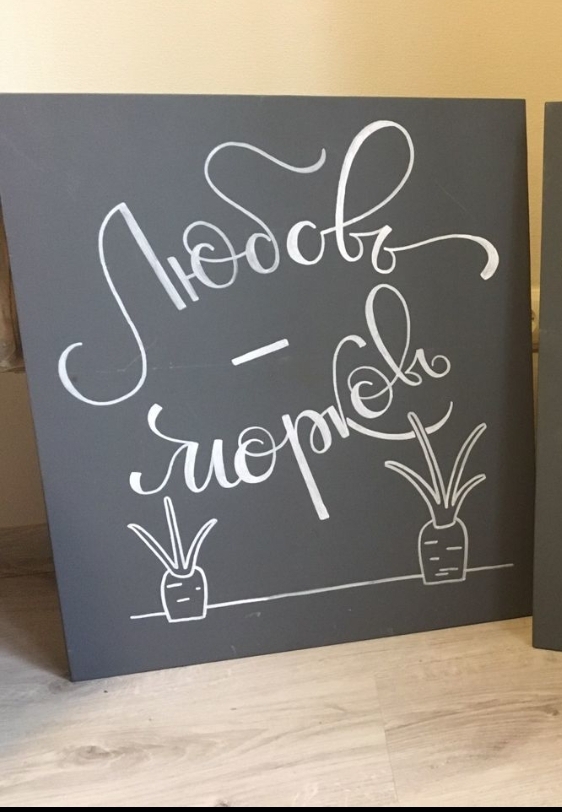 Любовь
—
морковь